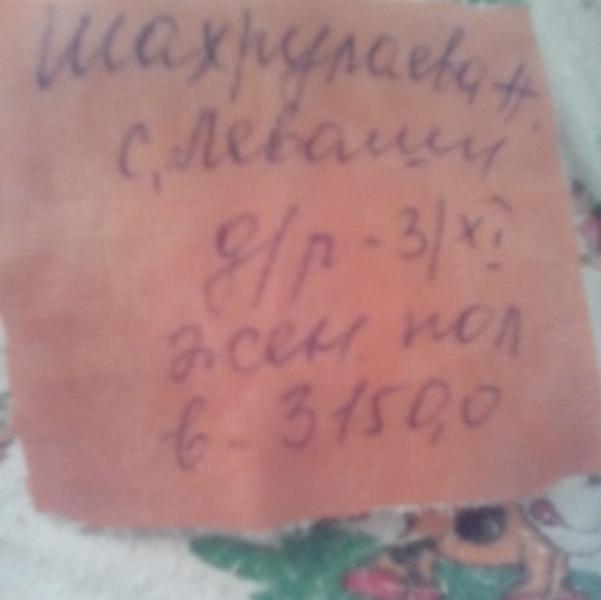 Шахрулаева Н.
с. Леваши
д/р - 3/XI
жен. пол
в - 3150,0